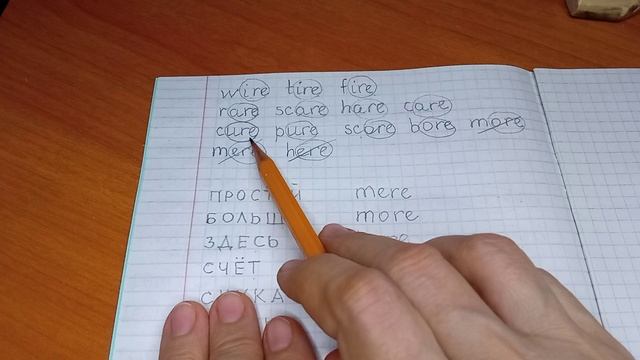 wire tire fire
rare scare hare care
cure pure score bore more
mere here
mere
more
ЗДЕСЬ
СЧЁТ